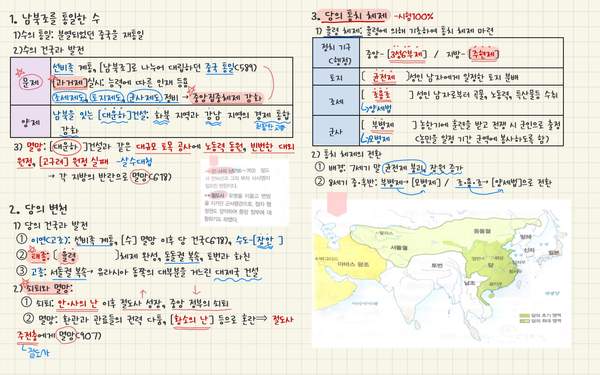 1. 남북조를 통일한 수
1)수의 통일: 분열되었던 중국을 재통일
2)수의 건국과 발전
문제
선비족 계통, [남북조]로 나누어 대립하던 중국 통일(589)
[과거제]실시: 능력에 따른 인재 등용
조세제도, 토지제도, 군사제도 정비 → 중앙집권체제 강화
양제
남북을 잇는 [대운하]건설: 화북 지역과 강남 지역의 경제 통합
강화
3) 멸망: [대운하]건설과 같은 대규모 토목 공사에 노동력 동원, 빈번한 대외
원정, [고구려] 원정 실패 -살수대첩
→ 각 지방의 반란으로 멸망(618)
2. 당의 변천
1) 당의 건국과 발전
① 이연(고조): 선비족 계통, [수] 멸망 이후 당 건국(618), 수도-[장안]
② 태종: [율령] 체제 완성, 동돌궐 복속, 토번과 화친
③ 고종: 서돌궐 복속→ 유라시아 동쪽의 대부분을 거느린 대제국 건설
2) 쇠퇴와 멸망:
① 쇠퇴: 안·사의 난 이후 절도사 성장, 중앙 정부의 쇠퇴
② 멸망: 환관과 관료들의 권력 다툼, [황소의 난] 등으로 혼란⟹ 절도사
주전충에게 멸망(907)
절도사
3. 당의 통치 체제 -시험100%
1) 율령 체제: 율령에 의해 기초하여 통치 체제 마련
정치 기구
(행정)
중앙- [3성6부제] / 지방- [주현제]
토지
[균전제] 성인 남자에게 일정한 토지 분배
조세
[조용조] 성인 남자로부터 곡물, 노동력, 특산물등 수취
양세법
군사
[부병제] 농한기에 훈련을 받고 전쟁 시 군인으로 출정
모병제
(농민을 일정 기간 군역에 봉사하도록 함)
2) 통치 체제의 전환
① 배경: 7세기 말 균전제 붕괴, 장원 증가
② 8세기 중·후반: 부병제→[모병제] / 조·용·조→[양세법]으로 전환
동돌궐
서돌궐
아바스 왕조
토번
당
남조
신라
일본
당의 초기 영역
당의 최대 영역